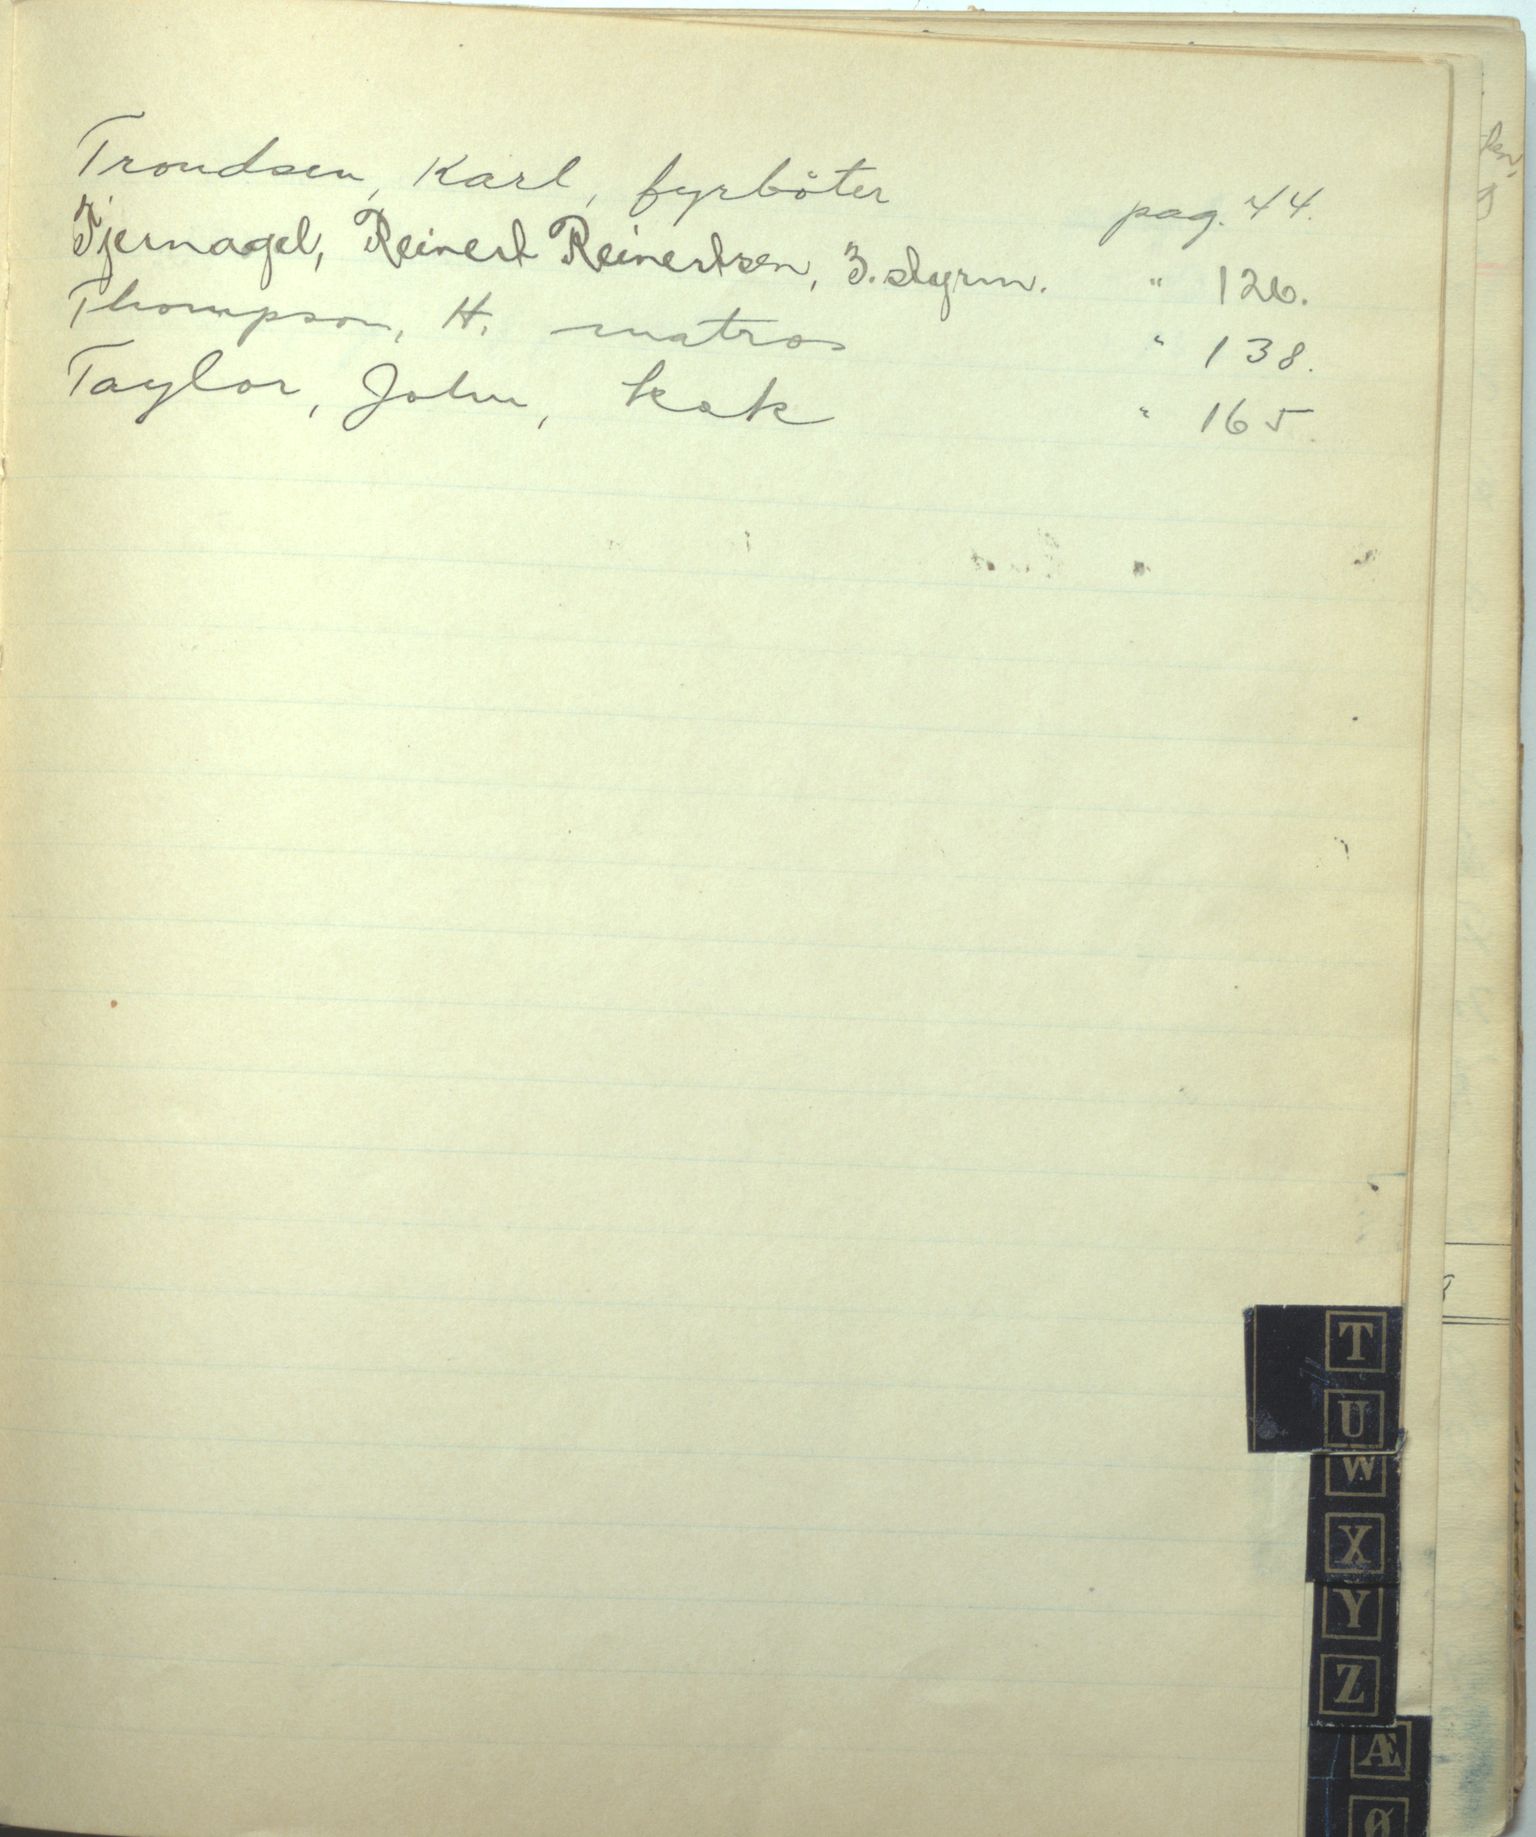 Trondsen, Karl, fyrböter pag. 44.
Tjernagel, Reinert Reinertsen, 3. styrm. " 126.
Thompson, H. matros " 138.
Taylor, John, kok " 165.
T
U
W
X
Y
Z
Æ
Ø